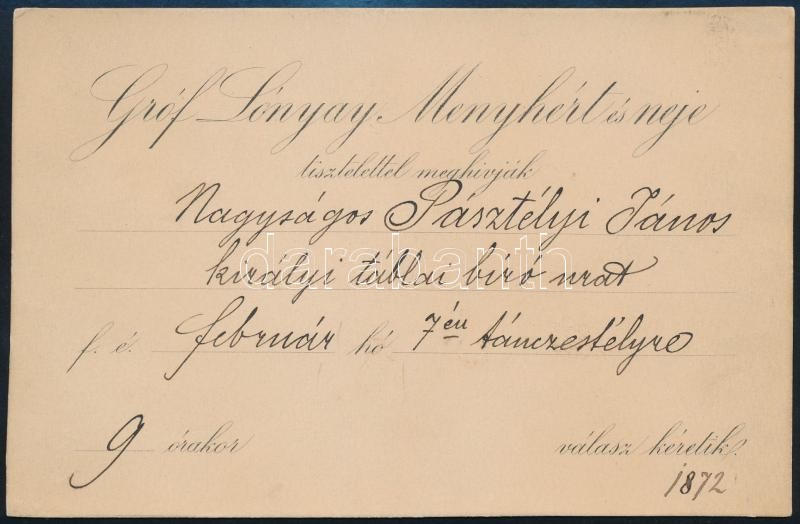 Gróf Lónyay Menyhért és neje
tisztelettel meghivják
Nagyságos Pásztélyi János
királyi táblai biró urat
f. é. február hó 7én tánczestélyre
9 órakor válasz kéretik.
1872
darabanth